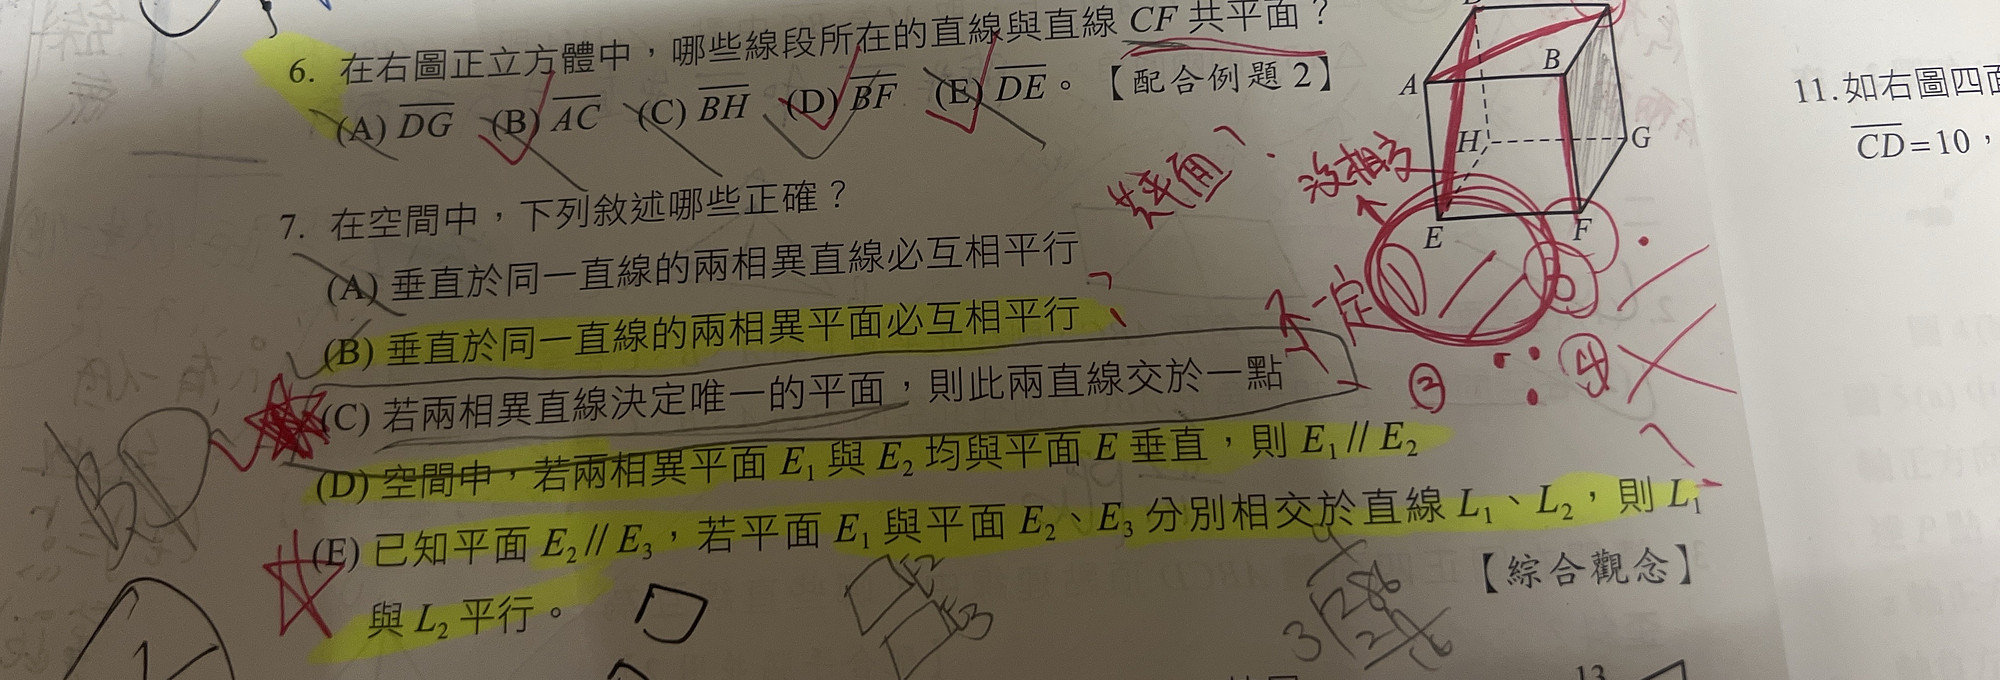 6. 在右圖正立方體中，哪些線段所在的直線與直線 CF 共平面？
(A) DG (B) AC (C) BH (D) BF (E) DE。【配合例題 2】
7. 在空間中，下列敘述哪些正確？
(A) 垂直於同一直線的兩相異直線必互相平行
(B) 垂直於同一直線的兩相異平面必互相平行
(C) 若兩相異直線決定唯一的平面，則此兩直線交於一點
(D) 空間中，若兩相異平面 E₁ 與 E₂ 均與平面 E 垂直，則 E₁ // E₂
(E) 已知平面 E₂ // E₃，若平面 E₁ 與平面 E₂、E₃ 分別相交於直線 L₁、L₂，則 L₁
與 L₂ 平行。
【綜合觀念】
A
B
H
G
E
F
共平面
沒相交
不一定
③
④
BD
E2
E3
3
286
11. 如右圖四面
CD=10，
13